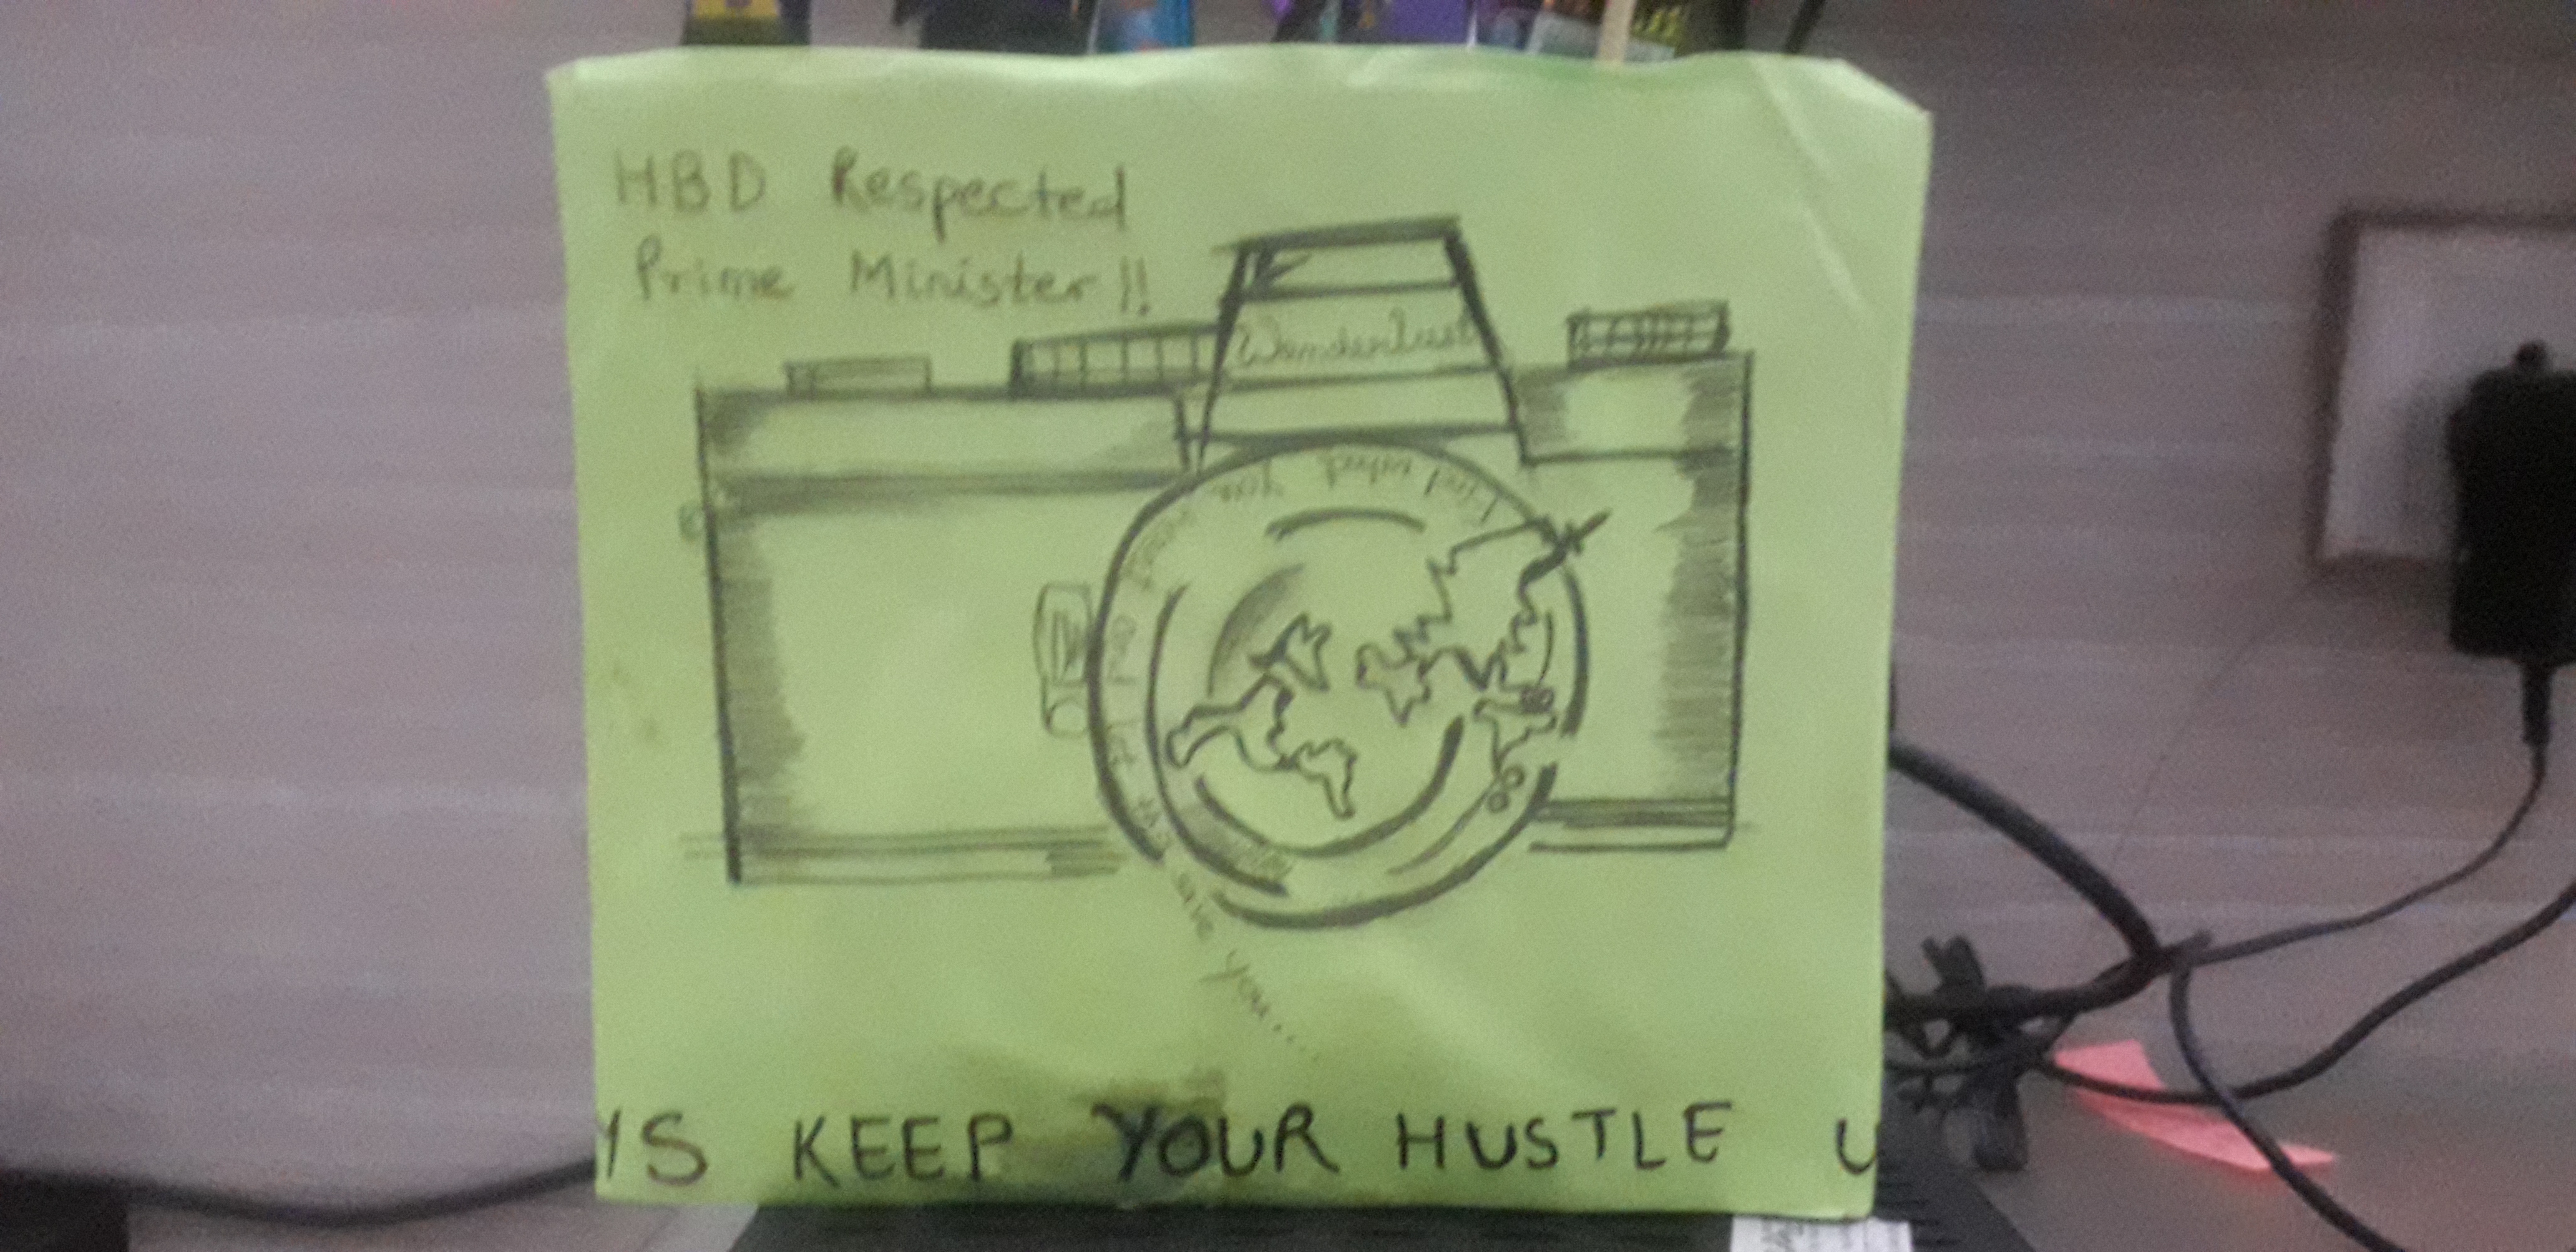 HBD Respected
Prime Minister!!
Wanderlust
Find what you
and let the
you....
YS KEEP YOUR HUSTLE U